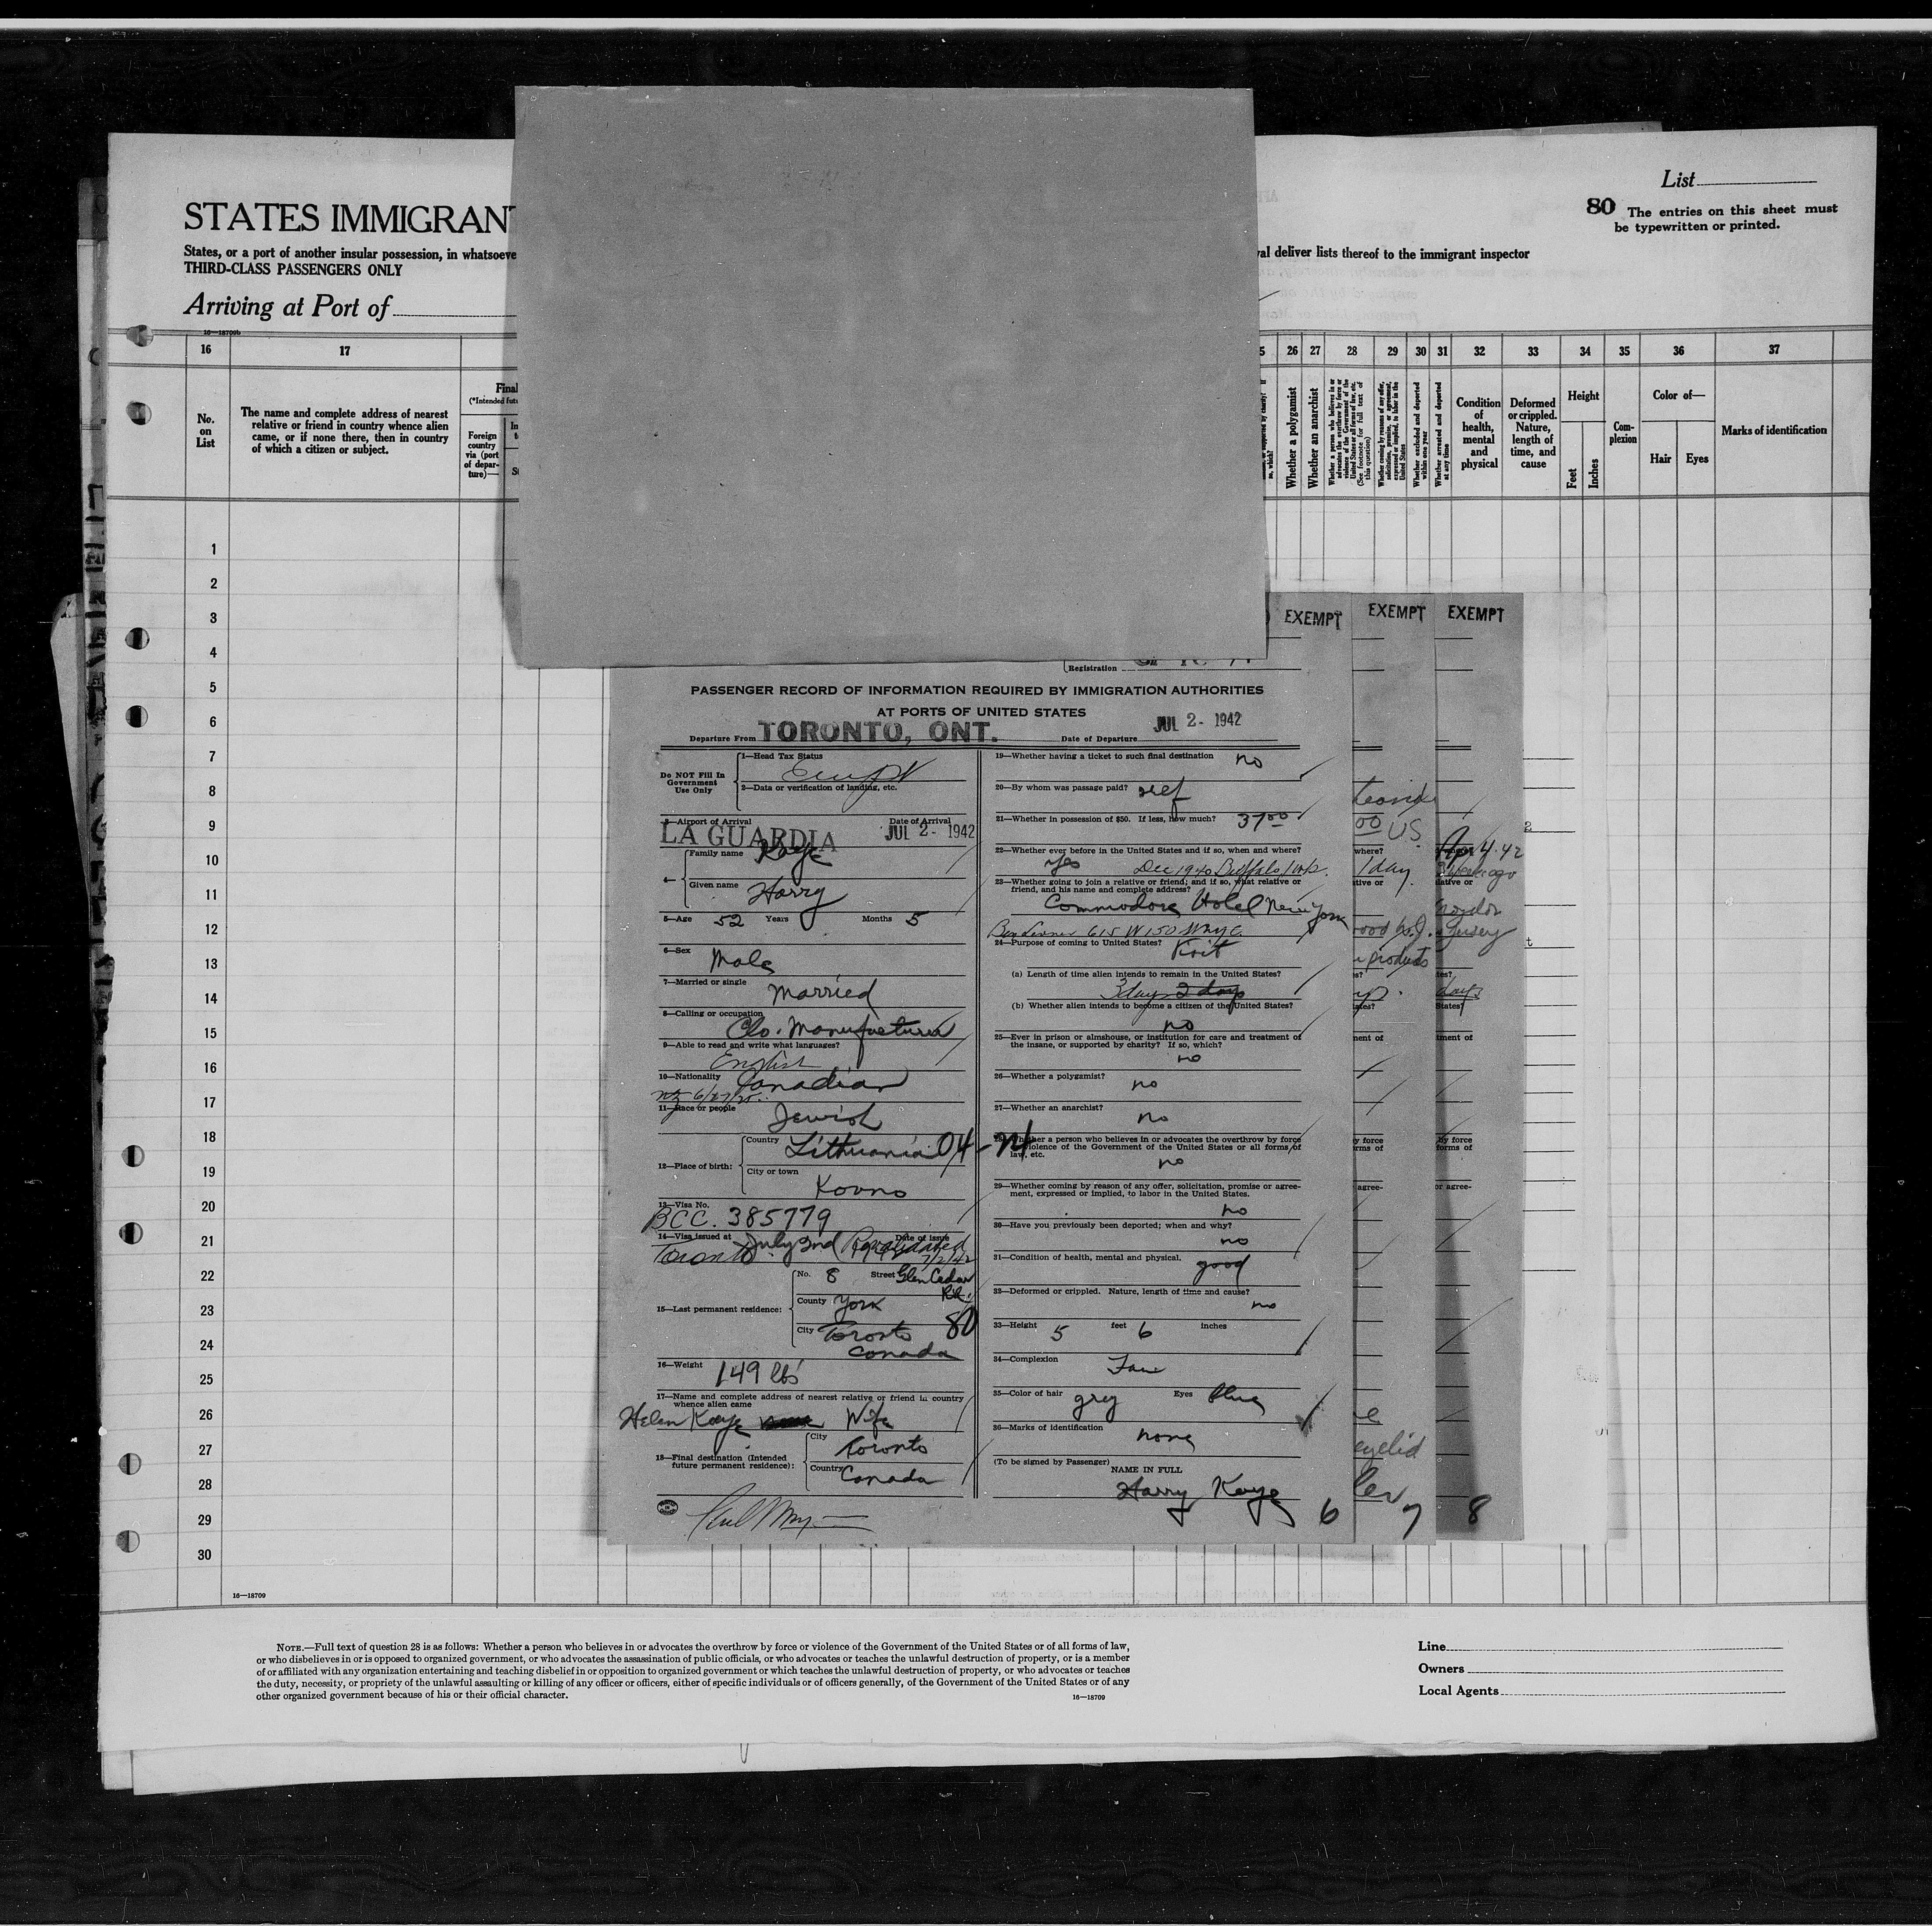 List
80 The entries on this sheet must
be typewritten or printed.
STATES IMMIGRANT
States, or a port of another insular possession, in whatsoeve
al deliver lists thereof to the immigrant inspector
THIRD-CLASS PASSENGERS ONLY
Arriving at Port of
16—18709b
16 17 26 27 28 29 30 31 32 33 34 35 36 37
No.
on
List
The name and complete address of nearest
relative or friend in country whence alien
came, or if none there, then in country
of which a citizen or subject.
Final
(*Intended futu
Foreign
country
via (port
of depar-
ture)—
Whether a polygamist
Whether an anarchist
Whether a person who believes in or
advocates the overthrow by force or
violence of the Government of the
United States or all forms of law, etc.
(See footnote for full text of
this question)
Whether coming by reasons of any offer,
solicitation, promise, or agreement,
expressed or implied, to labor in the
United States
Whether excluded and deported
within one year
Whether arrested and deported
at any time
Condition
of
health,
mental
and
physical
Deformed
or crippled.
Nature,
length of
time, and
cause
Height
Feet
Inches
Com-
plexion
Color of—
Hair Eyes
Marks of identification
1
2
3
4
5
6
7
8
9
10
11
12
13
14
15
16
17
18
19
20
21
22
23
24
25
26
27
28
29
30
16—18709
EXEMPT EXEMPT EXEMPT
Registration
PASSENGER RECORD OF INFORMATION REQUIRED BY IMMIGRATION AUTHORITIES
AT PORTS OF UNITED STATES
Departure From TORONTO, ONT. Date of Departure JUL 2 - 1942
Do NOT Fill In
Government
Use Only
1—Head Tax Status
Exempt
2—Data or verification of landing, etc.
3—Airport of Arrival Date of Arrival
LA GUARDIA JUL 2 - 1942
4— Family name Kaye
Given name Harry
5—Age 52 Years Months 5
6—Sex Male
7—Married or single Married
8—Calling or occupation
Clo. Manufacturer
9—Able to read and write what languages?
English
10—Nationality Canadian
ntz 6/27/25.
11—Race or people Jewish
12—Place of birth: Country Lithuania 04-N
City or town
Kovno
13—Visa No.
BCC. 385779
14—Visa issued at Date of issue
Toronto July 2nd Revalidated
7/2/42
15—Last permanent residence: No. 8 Street Glen Cedar
Rd.
County York
80
City Toronto
Canada
16—Weight 149 lbs
17—Name and complete address of nearest relative or friend in country
whence alien came
Helen Kaye Wife
18—Final destination (Intended
future permanent residence):
City
Toronto
Country Canada
19—Whether having a ticket to such final destination no
20—By whom was passage paid? self
21—Whether in possession of $50. If less, how much? 37.00
22—Whether ever before in the United States and if so, when and where?
Yes Dec 1940 Buffalo 1 wk.
23—Whether going to join a relative or friend; and if so, what relative or
friend, and his name and complete address?
Commodore Hotel New York
615 W 150 NYC.
24—Purpose of coming to United States? Visit
(a) Length of time alien intends to remain in the United States?
3 days 2 days
(b) Whether alien intends to become a citizen of the United States?
no
25—Ever in prison or almshouse, or institution for care and treatment of
the insane, or supported by charity? If so, which?
no
26—Whether a polygamist?
no
27—Whether an anarchist?
no
28—Whether a person who believes in or advocates the overthrow by force
or violence of the Government of the United States or all forms of
law, etc.
no
29—Whether coming by reason of any offer, solicitation, promise or agree-
ment, expressed or implied, to labor in the United States.
no
30—Have you previously been deported; when and why?
no
31—Condition of health, mental and physical. good
32—Deformed or crippled. Nature, length of time and cause?
no
33—Height 5 feet 6 inches
34—Complexion Fair
35—Color of hair grey Eyes blue
36—Marks of identification
none
(To be signed by Passenger)
NAME IN FULL
Harry Kaye
6 7 8
00 US
where?
1 day
Apr 4-42
products
days
eyelid
NOTE.—Full text of question 28 is as follows: Whether a person who believes in or advocates the overthrow by force or violence of the Government of the United States or of all forms of law,
or who disbelieves in or is opposed to organized government, or who advocates the assassination of public officials, or who advocates or teaches the unlawful destruction of property, or is a member
of or affiliated with any organization entertaining and teaching disbelief in or opposition to organized government or which teaches the unlawful destruction of property, or who advocates or teaches
the duty, necessity, or propriety of the unlawful assaulting or killing of any officer or officers, either of specific individuals or of officers generally, of the Government of the United States or of any
other organized government because of his or their official character.
16—18709
Line
Owners
Local Agents